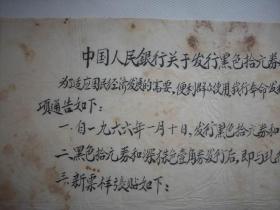 中国人民銀行关于发行黑色拾元券
为了适应国民经济发展的需要，便利群众使用我行奉命发
项通告如下：
一．自一九六六年一月十日，发行黑色拾元券和
二．黑色拾元券和深棕色壹角券发行后，即与此
三．新票样张贴如下：